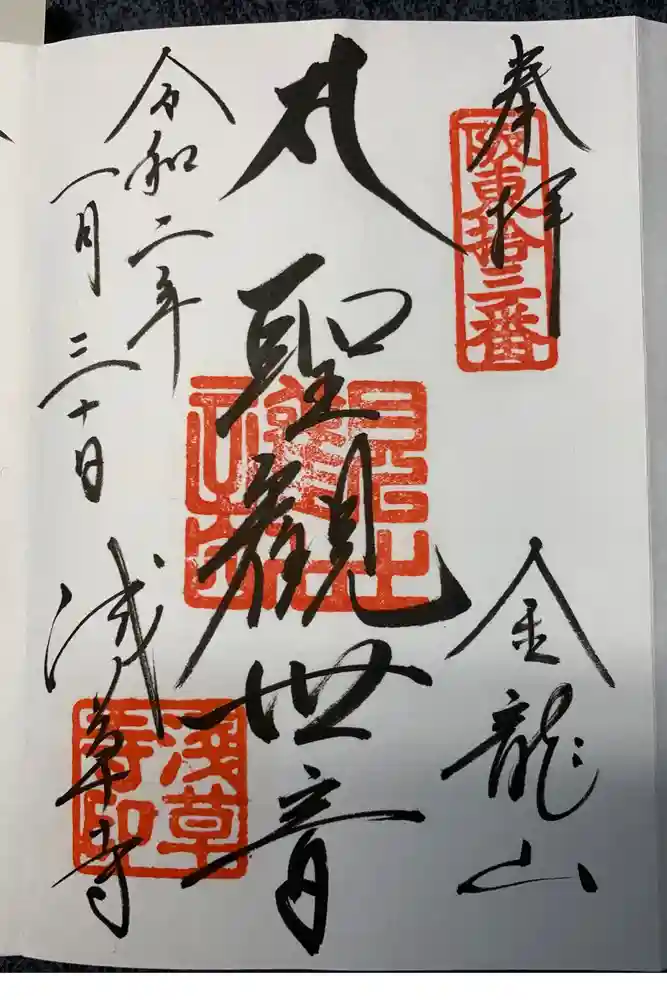 奉拝
坂東拾三番
金龍山
聖觀世音
令和二年
一月三十日
浅草寺
淺草寺印